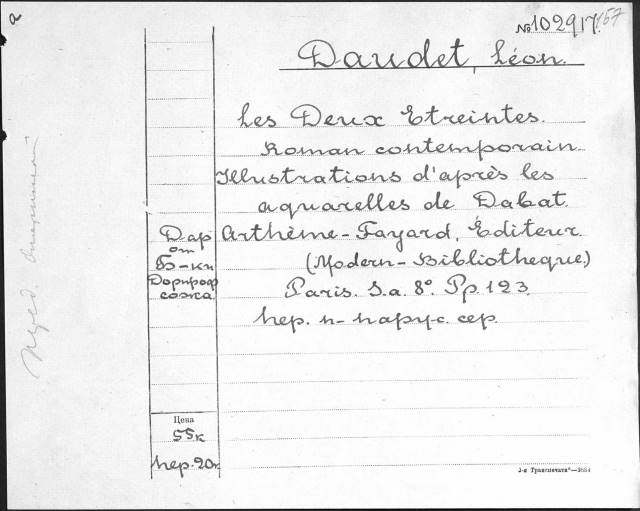 №102917.157
Daudet, Léon.
Les Deux Etreintes.
Roman contemporain.
Illustrations d'après les
aquarelles de Dabat.
Arthème-Fayard, Éditeur.
(Modern-Bibliotheque.)
Paris. S.a. 8°. Pp. 123.
пер. п-парус. сер.
Дар
от
Б-ки
Дорпроф
сожа
Цена
55к
пер. 20к
3-я Транспечать—3884